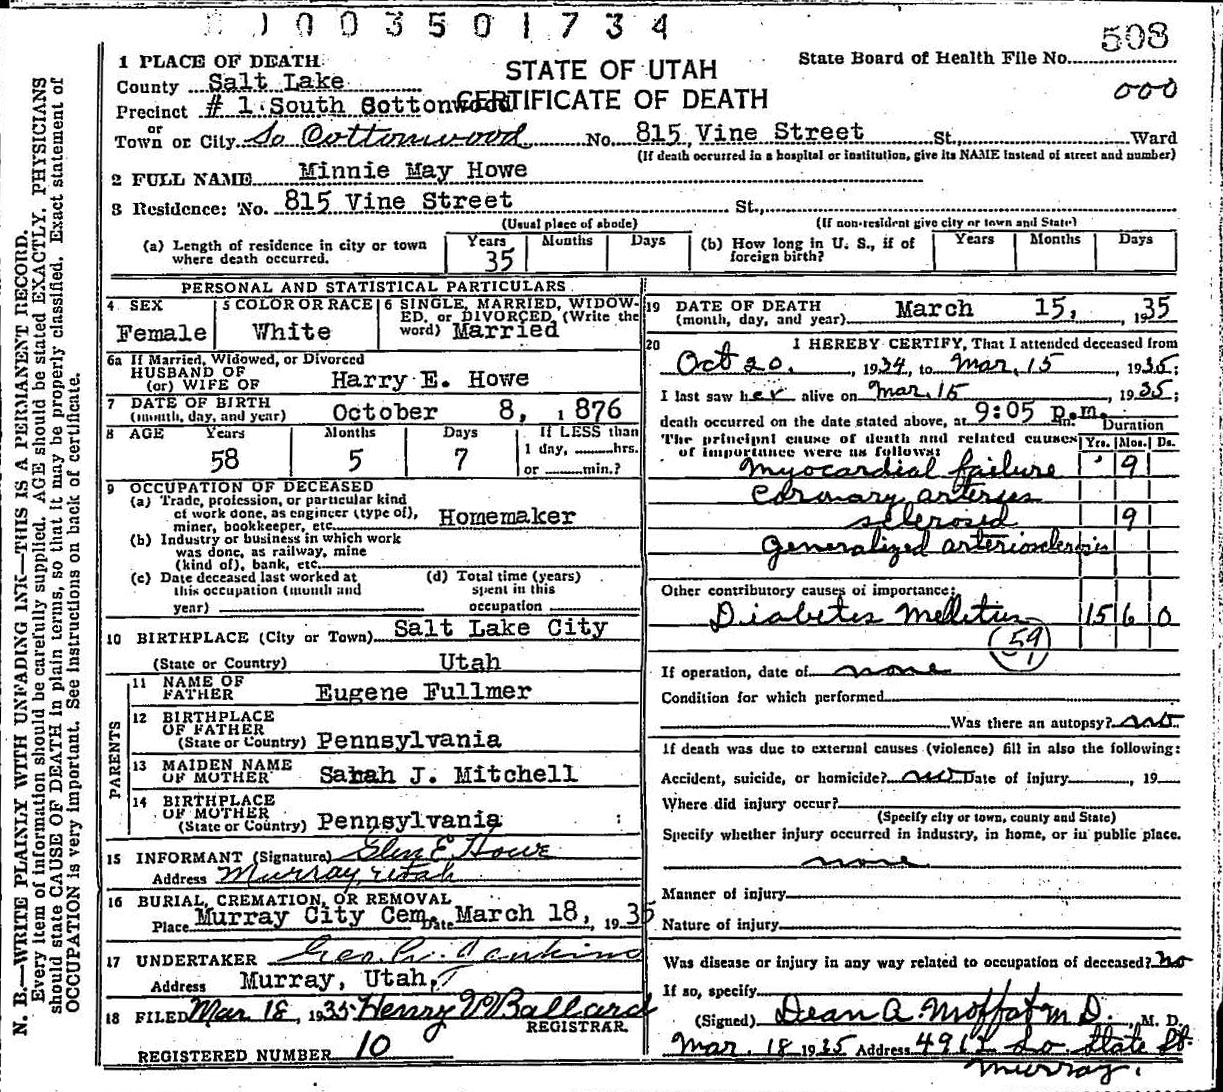 0 0 3 5 0 1 7 3 4
508
1 PLACE OF DEATH
State Board of Health File No.
STATE OF UTAH
County Salt Lake
000
CERTIFICATE OF DEATH
Precinct # 1 South Cottonwood
Town or City So Cottonwood No. 815 Vine Street St., Ward
(If death occurred in a hospital or institution, give its NAME instead of street and number)
2 FULL NAME Minnie May Howe
3 Residence: No. 815 Vine Street St.,
(Usual place of abode) (If non-resident give city or town and State)
(a) Length of residence in city or town where death occurred. Years 35 Months Days
(b) How long in U. S., if of foreign birth? Years Months Days
PERSONAL AND STATISTICAL PARTICULARS
4 SEX
Female
5 COLOR OR RACE
White
6 SINGLE, MARRIED, WIDOW-
ED, or DIVORCED, (Write the
word) Married
6a If Married, Widowed, or Divorced
HUSBAND OF
(or) WIFE OF Harry E. Howe
7 DATE OF BIRTH
(month, day, and year) October 8, 1876
8 AGE Years Months Days If LESS than
58 5 7 1 day, hrs.
or min.?
9 OCCUPATION OF DECEASED
(a) Trade, profession, or particular kind
of work done, as engineer (type of),
miner, bookkeeper, etc. Homemaker
(b) Industry or business in which work
was done, as railway, mine
(kind of), bank, etc.
(c) Date deceased last worked at
this occupation (month and
year)
(d) Total time (years)
spent in this
occupation
10 BIRTHPLACE (City or Town) Salt Lake City
(State or Country) Utah
PARENTS
11 NAME OF
FATHER Eugene Fullmer
12 BIRTHPLACE
OF FATHER
(State or Country) Pennsylvania
13 MAIDEN NAME
OF MOTHER Sarah J. Mitchell
14 BIRTHPLACE
OF MOTHER
(State or Country) Pennsylvania
15 INFORMANT (Signature) Glen E Howe
Address Murray, Utah
16 BURIAL, CREMATION, OR REMOVAL
Place Murray City Cem. Date March 18, 1935
17 UNDERTAKER Geo. W. Jenkins
Address Murray, Utah,
18 FILED Mar 18, 1935 Henry W Ballard
REGISTRAR.
REGISTERED NUMBER 10
19 DATE OF DEATH
(month, day, and year) March 15, 1935
20 I HEREBY CERTIFY, That I attended deceased from
Oct 20, 1934, to Mar. 15, 1935;
I last saw her alive on Mar. 15, 1935;
death occurred on the date stated above, at 9:05 p.m.
Duration
The principal cause of death and related causes Yrs. Mos. Ds.
of importance were as follows:
Myocardial failure 9
Coronary arteries
sclerosed 9
Generalized arteriosclerosis
Other contributory causes of importance:
Diabetes Mellitus 15 6 0
59
1
If operation, date of none
Condition for which performed
Was there an autopsy? no
If death was due to external causes (violence) fill in also the following:
Accident, suicide, or homicide? no Date of injury , 19
Where did injury occur?
(Specify city or town, county and State)
Specify whether injury occurred in industry, in home, or in public place.
none
Manner of injury
Nature of injury
Was disease or injury in any way related to occupation of deceased? no
If so, specify
(Signed) Dean A. Moffat M D., M. D.
Mar. 18 1935 Address 4961 So State St.
Murray.
N. B.—WRITE PLAINLY WITH UNFADING INK—THIS IS A PERMANENT RECORD.
Every item of information should be carefully supplied. AGE should be stated EXACTLY. PHYSICIANS
should state CAUSE OF DEATH in plain terms, so that it may be properly classified. Exact statement of
OCCUPATION is very important. See instructions on back of certificate.